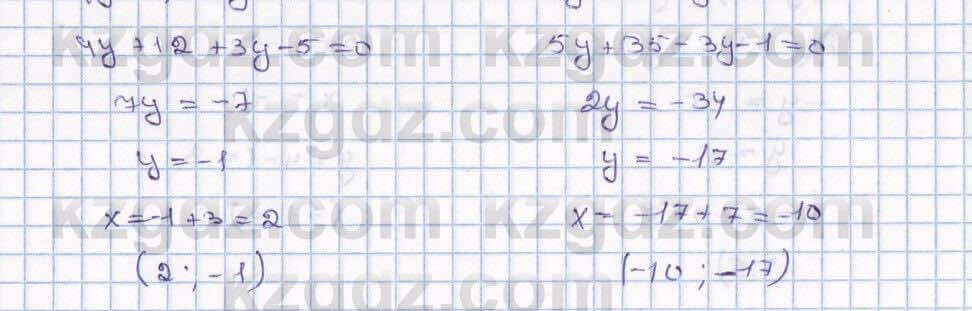 4y+12+3y-5=0
7y = -7
y = -1
x=-1+3=2
(2; -1)
5y+35-3y-1=0
2y = -34
y = -17
x= -17+7=-10
(-10; -17)
kzgdz.com
kzgdz.com
kzgdz.com
kzgdz.com
kzgdz.com
kzgdz.com